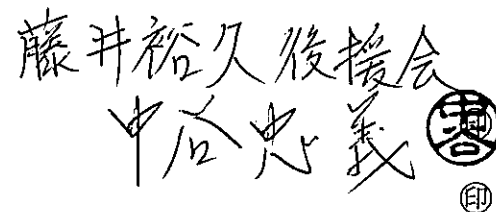 藤井裕久後援会
中谷忠義
中谷
印